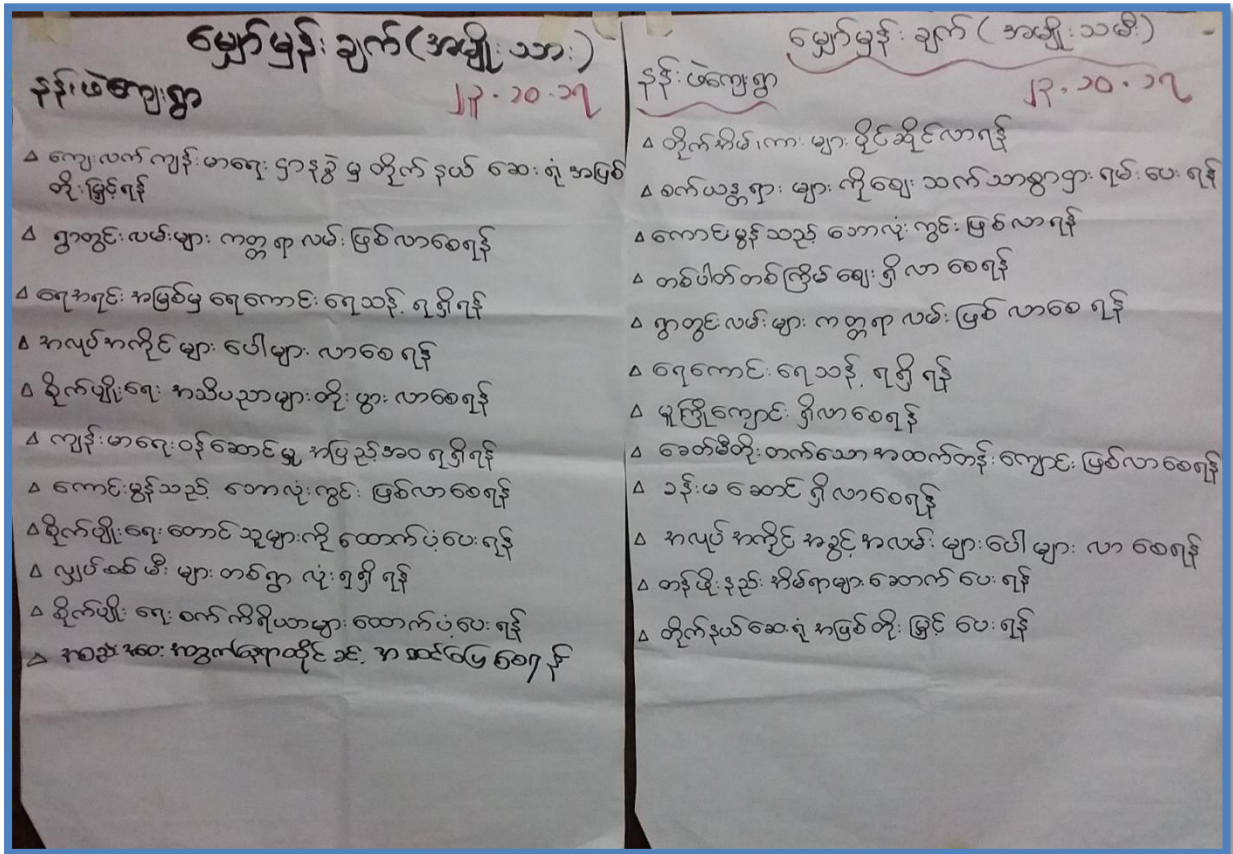 မျှော်မှန်းချက် (အမျိုးသား)
နန်းဖဲကျေးရွာ
၂၃.၁၀.၁၇
△ ကျေးလက်ကျန်းမာရေးဌာနခွဲမှ တိုက်နယ်ဆေးရုံအဖြစ်
တိုးမြှင့်ရန်
△ ရွာတွင်းလမ်းများ ကတ္တရာလမ်းဖြစ်လာစေရန်
△ ရေအရင်းအမြစ်မှ ရေကောင်းရေသန့်ရရှိရန်
△ အလုပ်အကိုင်များ ပေါများလာစေရန်
△ စိုက်ပျိုးရေး အသိပညာများတိုးပွားလာစေရန်
△ ကျန်းမာရေးဝန်ဆောင်မှု အပြည့်အဝရရှိရန်
△ ကောင်းမွန်သည့် ဘောလုံးကွင်း ဖြစ်လာစေရန်
△ စိုက်ပျိုးရေးတောင်သူများကို ထောက်ပံ့ပေးရန်
△ လျှပ်စစ်မီးများ တစ်ရွာလုံးရရှိရန်
△ စိုက်ပျိုးရေးစက်ကိရိယာများထောက်ပံ့ပေးရန်
△ အစည်းအဝေးအတွက်နေရာထိုင်ခင်းအဆင်ပြေစေရန်
မျှော်မှန်းချက် (အမျိုးသမီး)
နန်းဖဲကျေးရွာ
၂၃.၁၀.၁၇
△ တိုက်အိမ်၊ကားများပိုင်ဆိုင်လာရန်
△ စက်ယန္တရားများကိုဈေးသက်သာစွာဌားရမ်းပေးရန်
△ ကောင်းမွန်သည့် ဘောလုံးကွင်းဖြစ်လာရန်
△ တစ်ပါတ်တစ်ကြိမ်ဈေးရှိလာစေရန်
△ ရွာတွင်းလမ်းများ ကတ္တရာလမ်းဖြစ်လာစေရန်
△ ရေကောင်းရေသန့်ရရှိရန်
△ မူကြိုကျောင်းရှိလာစေရန်
△ ခေတ်မီတိုးတက်သောအထက်တန်းကျောင်းဖြစ်လာစေရန်
△ ခန်းမဆောင်ရှိလာစေရန်
△ အလုပ်အကိုင်အခွင့်အလမ်းများပေါများလာစေရန်
△ တန်ဖိုးနည်းအိမ်ရာများဆောက်ပေးရန်
△ တိုက်နယ်ဆေးရုံအဖြစ်တိုးမြှင့်ပေးရန်